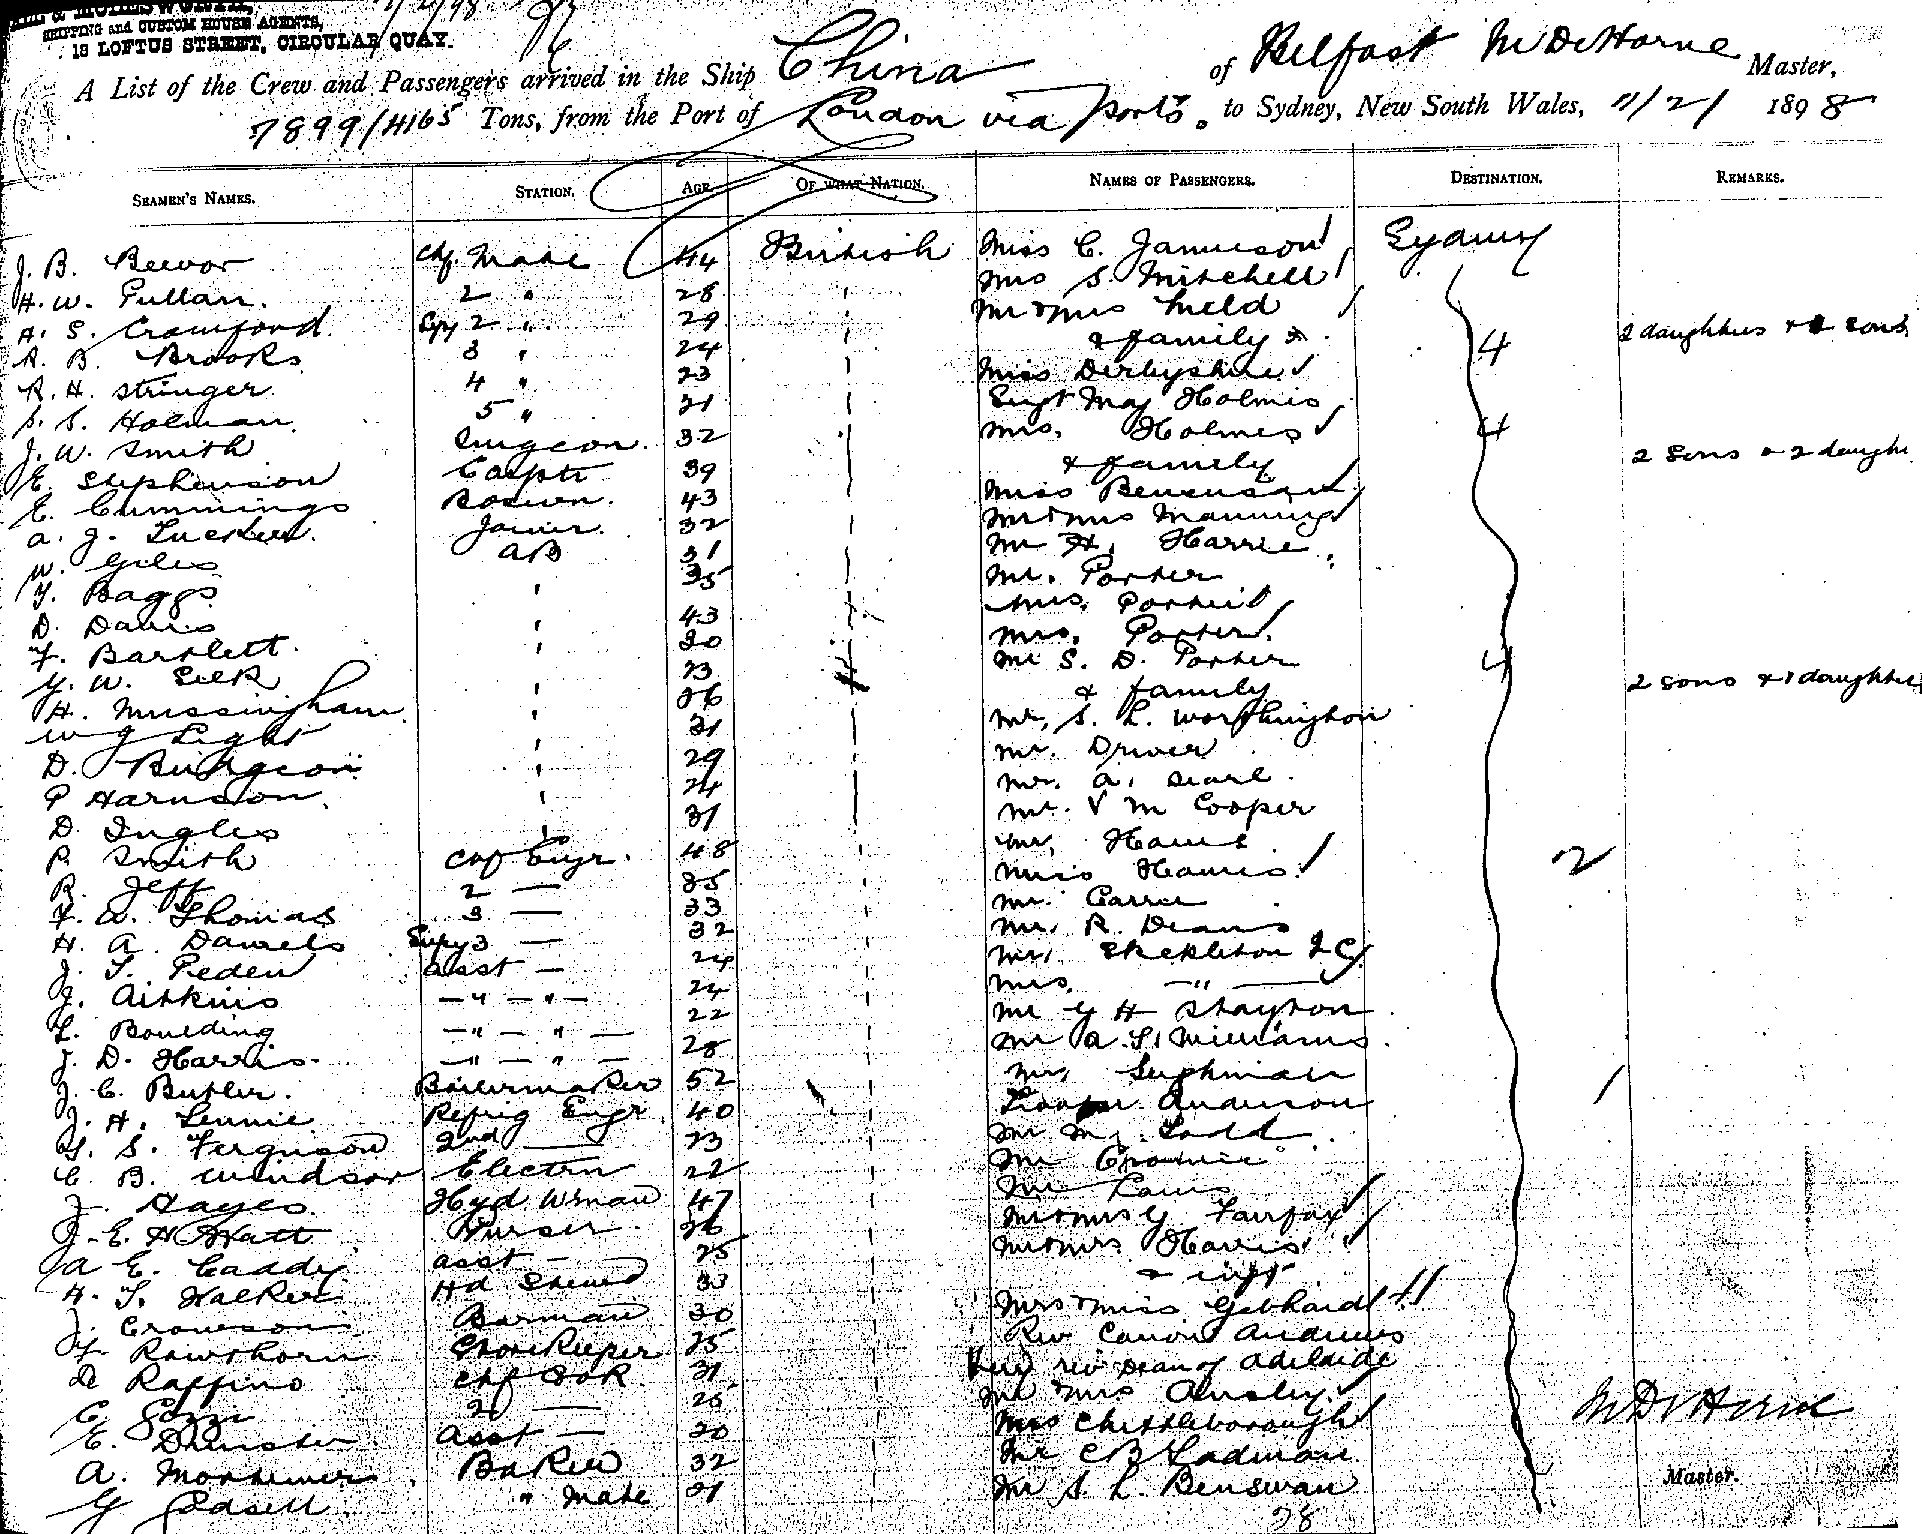 SHIPPING and CUSTOM HOUSE AGENTS,
13 LOFTUS STREET, CIRCULAR QUAY.
A List of the Crew and Passengers arrived in the Ship China of Belfast M De Horne Master,
7899/4165 Tons, from the Port of London via Ports. to Sydney, New South Wales, 11/2/ 1898
SEAMEN'S NAMES. STATION. AGE OF WHAT NATION. NAMES OF PASSENGERS. DESTINATION. REMARKS.
J. B. Beevor Chf. Mate 44 British Miss C. Jamieson Sydney
H. W. Pullan. 2 " 28 Mrs S. Mitchell
A. S. Crawford Spy 2 " 29 Mr & Mrs Meld
A. B. Brooks 3 " 24 & family 4 2 daughters & sons
R. H. Stringer 4 " 23 Miss Derbyshire
S. S. Holman 5 " 21 Sergt Maj Holmes
J. W. Smith Surgeon. 32 Mrs. Holmes 4
E. Stephenson Carptr 39 & family 2 sons & 2 daugh
E. Cummings Boswn. 43 Miss
A. J. Tucker. Joiner. 32 Mr & Mrs Manning
W. Giles AB 31 Mr H. Harrie
Baggs " 35 Mr. Porter
D. Davis " 43 Mrs. Porter
F. Bartlett. " 30 Mrs. Porter
G. W. Silk " 23 Mr S. D. Porter 4
H. Mussingham " 26 & family 2 sons & 1 daughter
W J Light " 21 Mr. S. L. Worthington
D. " 29 Mr. Driver
P Harnson. " 24 Mr. A. Searl.
D. Ingles " 31 Mr. V M Cooper
P. Smith Chf Engr. 48 Mr. 2
R. Jeff 2 — 35 Miss
F. W. Thomas 3 — 33 Mr.
H. A. Daniels Supy 3 — 32 Mr. R. Deans
J. T. Peden Asst — 24 Mr. Shekleton J C
J. Aitkins — " — " — 24 Mrs. — " —
Boulding — " — " — 22 Mr G H Stayton
J. D. Harris. — " — " — 28 Mr A. S. Williams.
J. C. Butler. Boilermaker 52 Mr.
J. H. Lennie Refrig Engr 40 Trooper Anderson
S. Ferguson 2nd — 23 Mr M. Todd
C. B. Windsor Electrn 22 Mr
J. Hayes Hyd Wsman 47 Mr
J. E. H Watt Purser 26 Mr & Mrs G Fairfax
A E. Caddy Asst — 25 Mr & Mrs Harris
H. T. Walker Hd Steward 33 & inft
J. Crowson Barman 30 Mrs & Miss Gebhardt
F. Rawsthorn Storekeeper 25 Rev Canon Andrews
D Raffino Chf Cook 31 Very rev Dean of Adelaide
C. Gozzi 2 — 25 Mr Mrs Ansley M De Horne
E. Asst — 20 Mrs Chittleborough
A. Mortimer Baker 32 Mr C B Ladman Master.
G " Mate 21 Mr S. L. Benswan
28